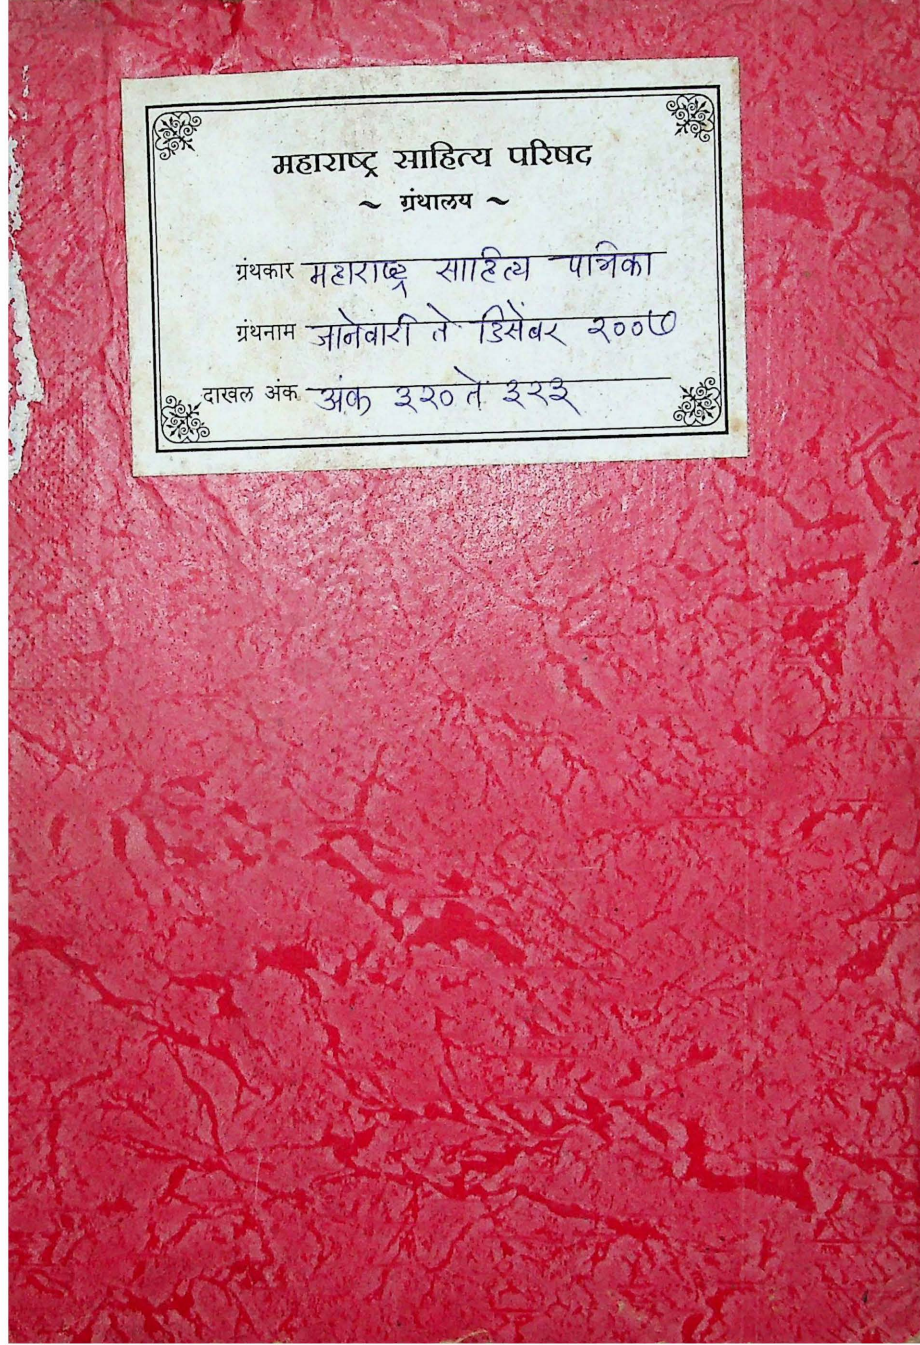 महाराष्ट्र साहित्य परिषद
~ ग्रंथालय ~
ग्रंथकार महाराष्ट्र साहित्य पत्रिका
ग्रंथनाम जानेवारी ते डिसेंबर २००७
दाखल अंक अंक ३२० ते ३२३